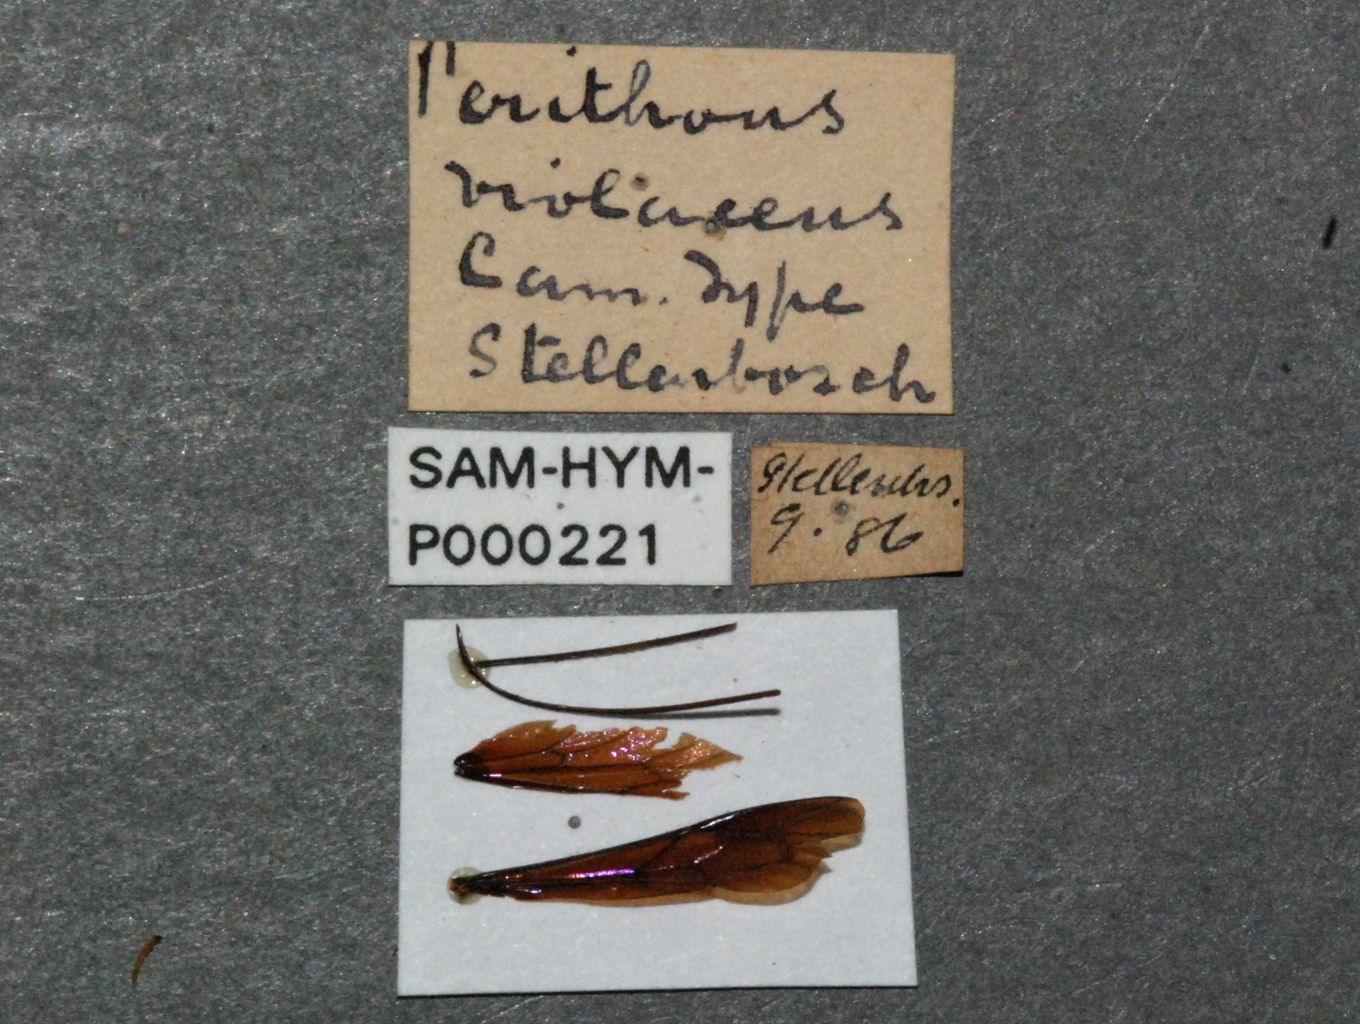 Perithous
violaceus
Cam. Type
Stellenbosch
SAM-HYM-
P000221
Stellenbs.
9.86